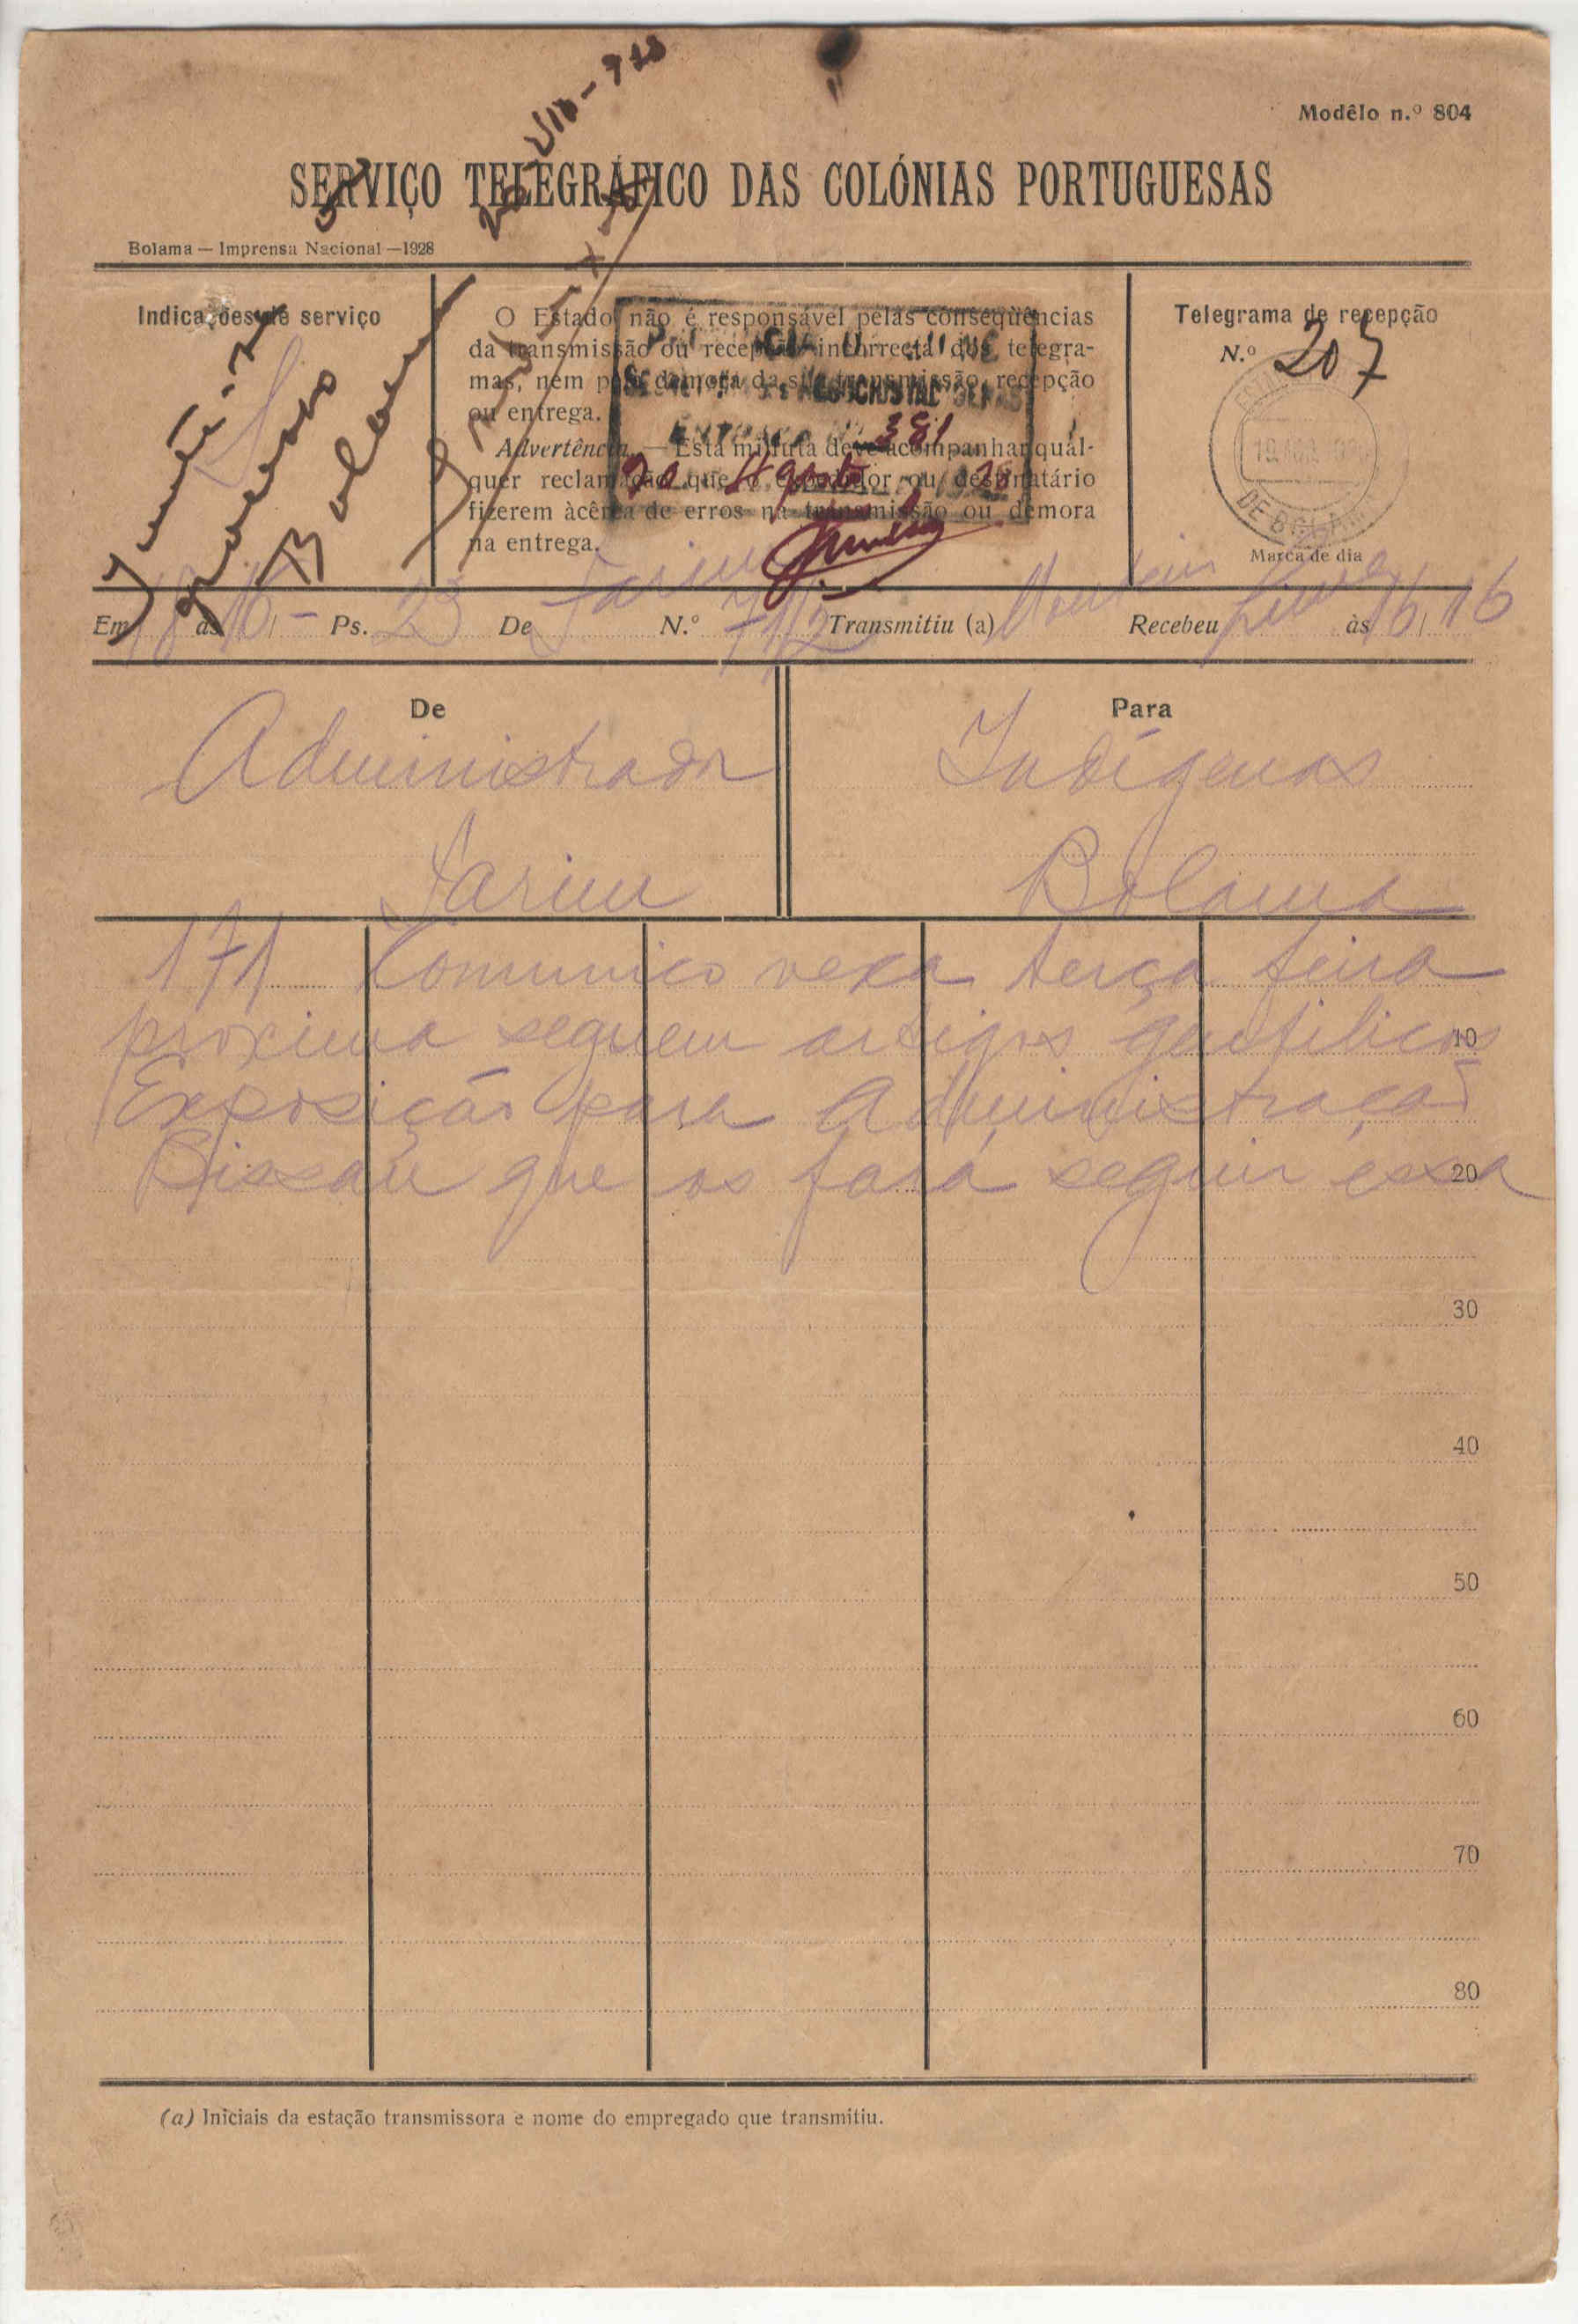 Modêlo n.º 804
SERVIÇO TELEGRÁFICO DAS COLÓNIAS PORTUGUESAS
Bolama — Imprensa Nacional —1928
Indicações de serviço
O Estado não é responsável pelas conseqüências
da transmissão ou recepção incorrecta dos telegra-
mas, nem pela demora da sua transmissão, recepção
ou entrega.
Advertência. — Esta minuta deve acompanhar quál-
quer reclamação que o expedidor ou destinatário
fizerem àcêrca de erros na transmissão ou demora
na entrega.
381
20 Agosto
Telegrama de recepção
N.º 207
DE BOLAMA
Marca de dia
Junte-se
Bolama
Em 18 às 16 - Ps. 23 De Farim N.º 71/2 Transmitiu (a) Recebeu às 16/16
De
Administrador
Farim
Para
Indígenas
Bolama
171 Comunico vexa terça feira
proxima seguem artigos gentilicos
10
Exposição para Administração
Bissau que os fará seguir essa
20
30
40
50
60
70
80
(a) Iniciais da estação transmissora e nome do empregado que transmitiu.